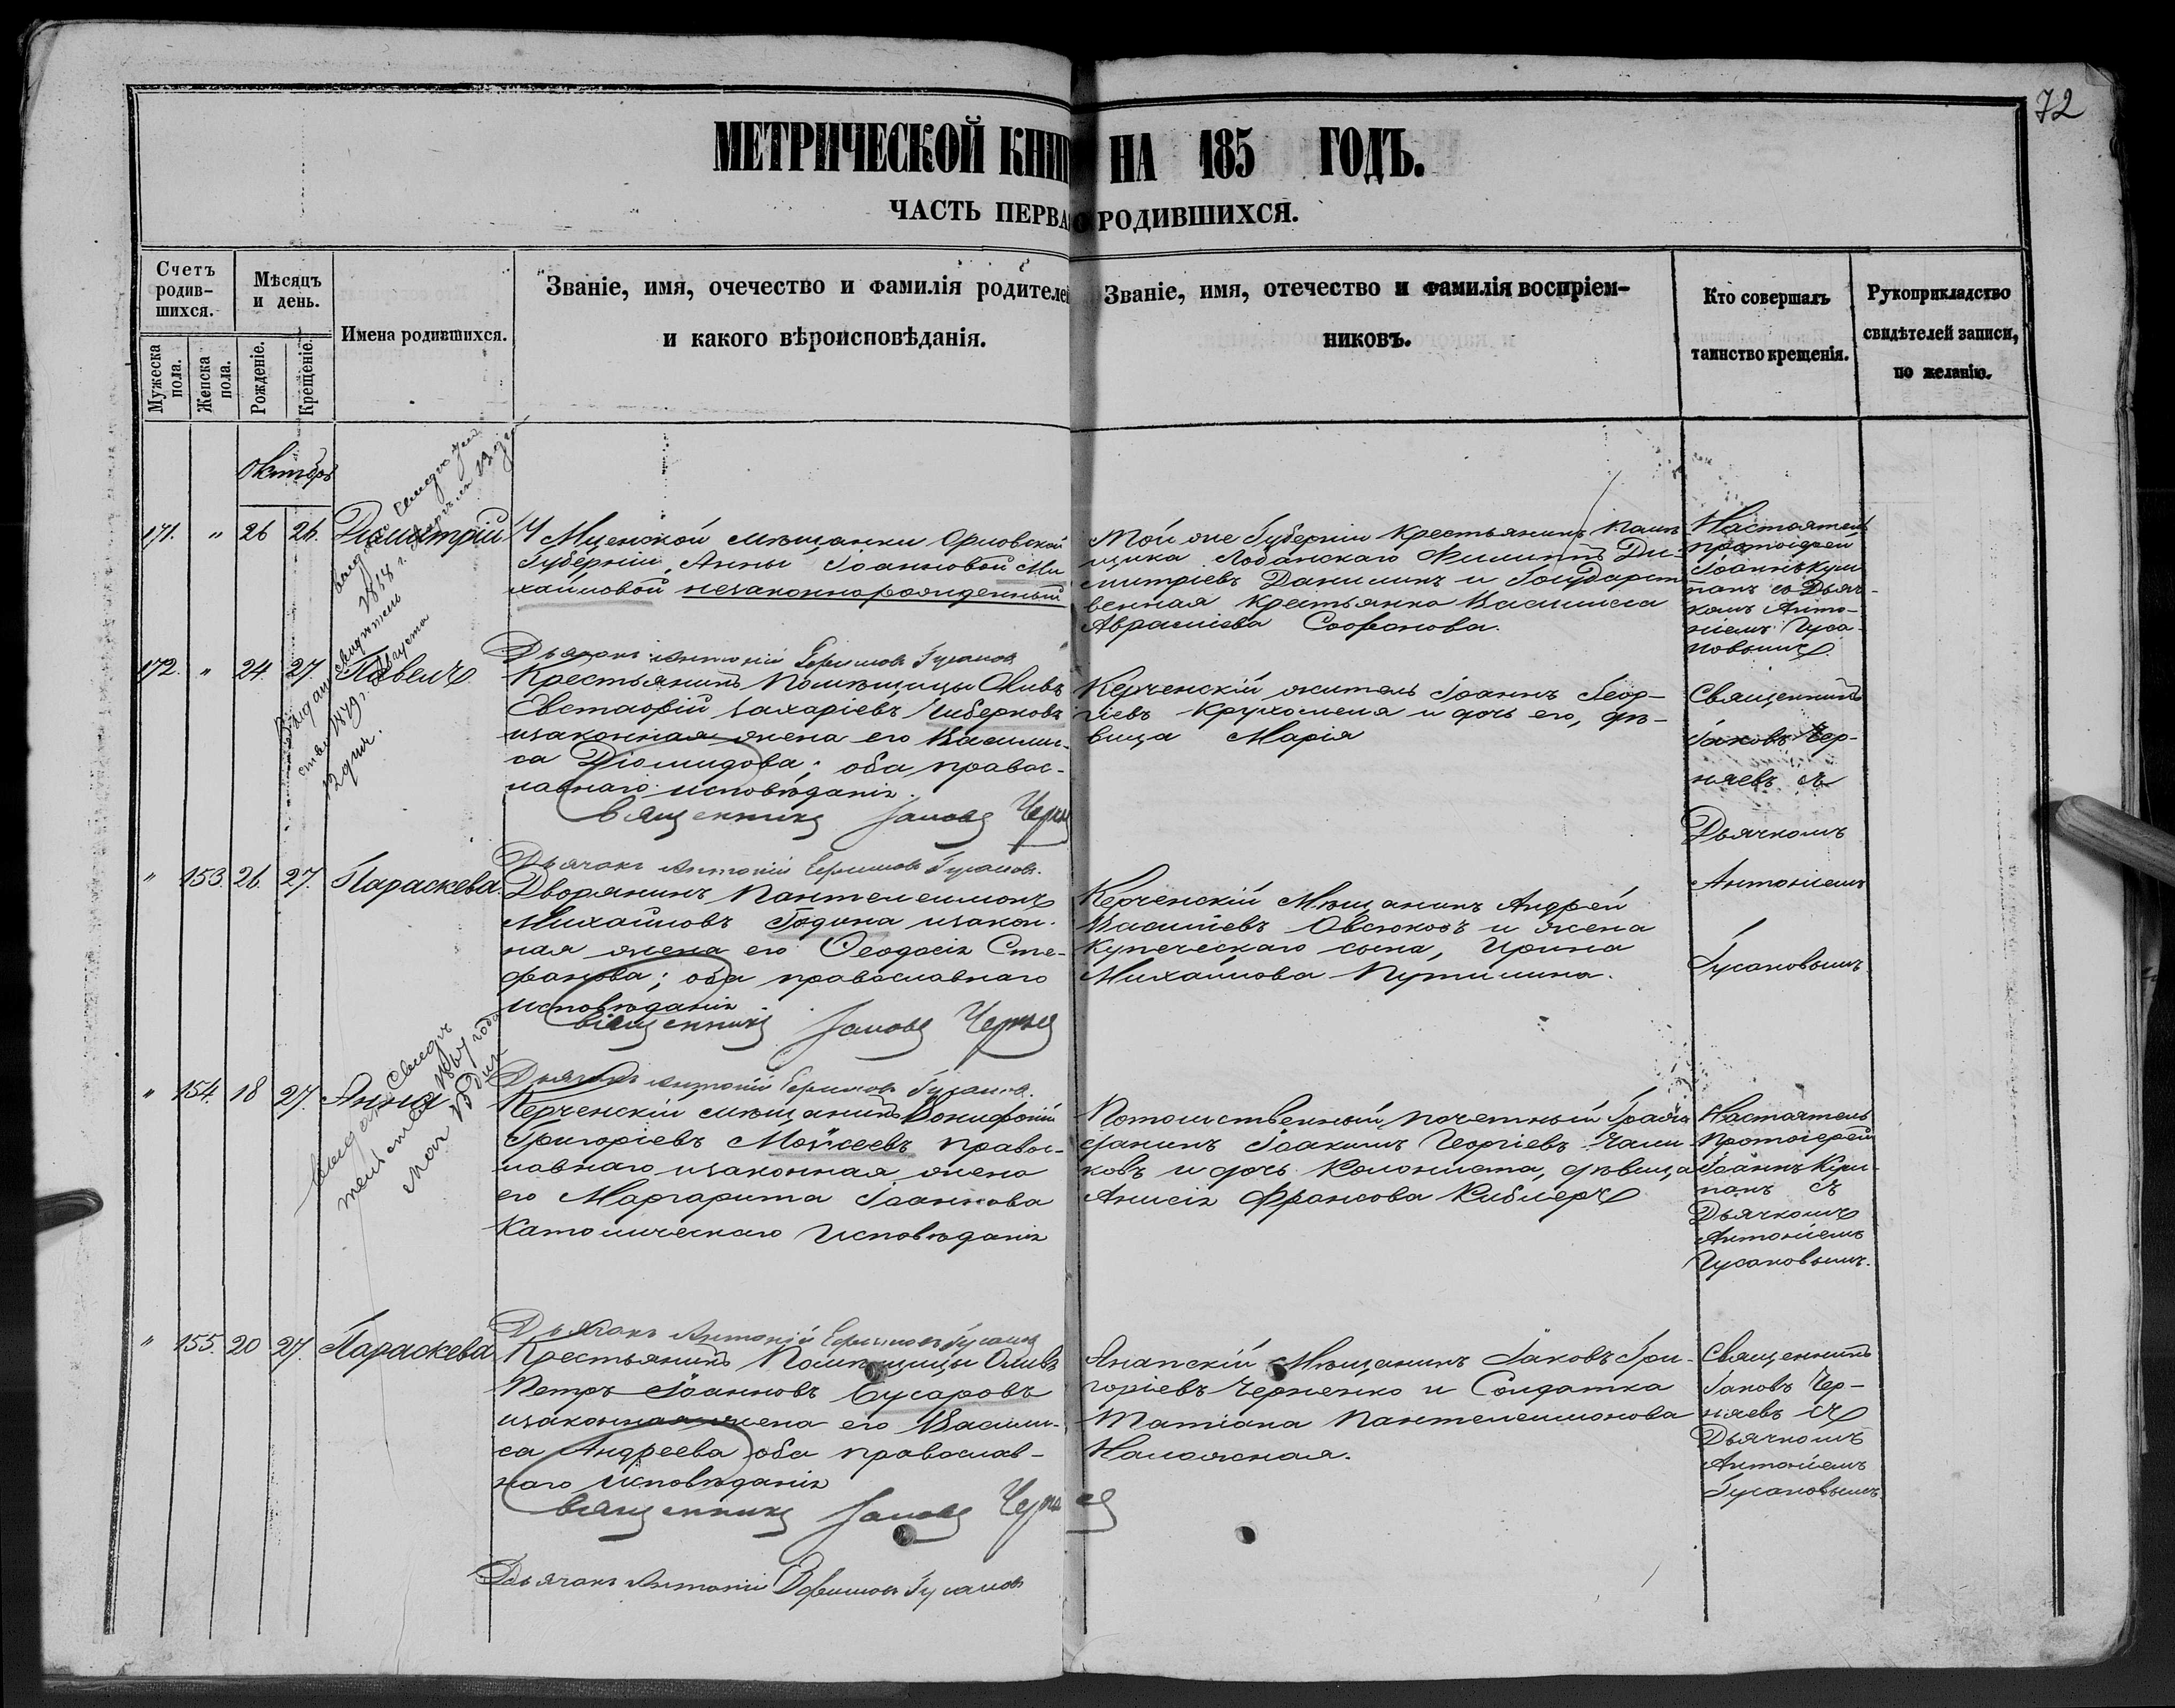 72
МЕТРИЧЕСКОЙ КНИГ НА 185 ГОДЪ.
ЧАСТЬ ПЕРВА О РОДИВШИХСЯ.
Счетъ родив-шихся.
Мужеска пола.
Женска пола.
Мѣсяцъ и день.
Рожденіе.
Крещеніе.
Имена родившихся.
Званіе, имя, очечество и фамилія родителей
и какого вѣроисповѣданія.
Званіе, имя, отечество и фамилія воспріем-
никовъ.
Кто совершалъ
таинство крещенія.
Рукоприкладство
свидѣтелей записи,
по желанію.
Октябрь
171. " 26 26. Димитрій
У Мценской мѣщанки Орловской
Губерніи, Анны Іоанновой Ми
хайловой незаконнорожденный
Той же Губерніи Крестьянинъ Помѣ
щика Лобанскаго Филиппъ Ди-
митріевъ Данилинъ и Государст
венная Крестьянка Василисса
Аврамиева Софонова.
Настоятель
протоіерей
Іоаннъ Кум
панъ со Дьяч-
комъ Анто-
ніемъ Гуса-
новымъ.
Дьячокъ Антоній Ефимовъ Гусановъ
172. " 24. 27. Павелъ
Крестьянинъ Помѣщицы Оливъ
Евстафій Захаріевъ Чиберковъ
изаконная жена его Васили-
са Діомидова; оба правос-
лавнаго исповѣданія.
Священникъ Іаковъ Черн
Керченскій житель Іоаннъ Геор-
гіевъ Крухомеля и дочь его, дѣ-
вица Марія
Священникъ
Іаковъ Чер-
няевъ съ
Дьячкомъ
Антоніемъ
Гусановымъ
Дьячокъ Антоній Ефимовъ Гусановъ.
" 153. 26. 27. Параскева.
Дворянинъ Пантелеимонъ
Михайловъ Година изакон-
ная жена его Ѳеодосія Сте-
фанова; оба православнаго
исповѣданія
Священникъ Іаковъ Черняев
Керченскій Мѣщанинъ Андрей
Васильевъ Овсюковъ и жена
Купеческаго сына, Ирина
Михайлова Путилина.
Дьячокъ Антоній Ефимовъ Гусановъ.
" 154. 18 27. Анна
Керченскій мѣщанинъ Вонифатій
Григоріевъ Мойсеевъ правос-
лавнаго изаконная жена
его Маргарита Іоаннова
Католическаго Исповѣданія
Потомственный почетный Граж
данинъ Іоакимъ Георгіевъ
ковъ и дочь Колониста, дѣвица
Анисія Францова Киблеръ
Настоятель
Протоіерей
Іоаннъ Кум-
панъ съ
Дьячкомъ
Антоніемъ
Гусановымъ.
Дьячокъ Антоній Ефимовъ Гусановъ
" 155. 20 27. Параскева
Крестьянинъ Помѣщицы Оливъ
Петръ Іоанновъ Бусаровъ
изаконная жена его Васили-
са Андреева оба православ-
наго Исповѣданія
Священникъ Іаковъ Черняев
Анапскій Мѣщанинъ Іаковъ Гри-
горіевъ Черненко и Солдатка
Татіана Пантелеимонова
Наможная.
Священникъ
Іаковъ Чер-
няевъ съ
Дьячкомъ
Антоніемъ
Гусановымъ
Дьячокъ Антоній Ефимовъ Гусановъ